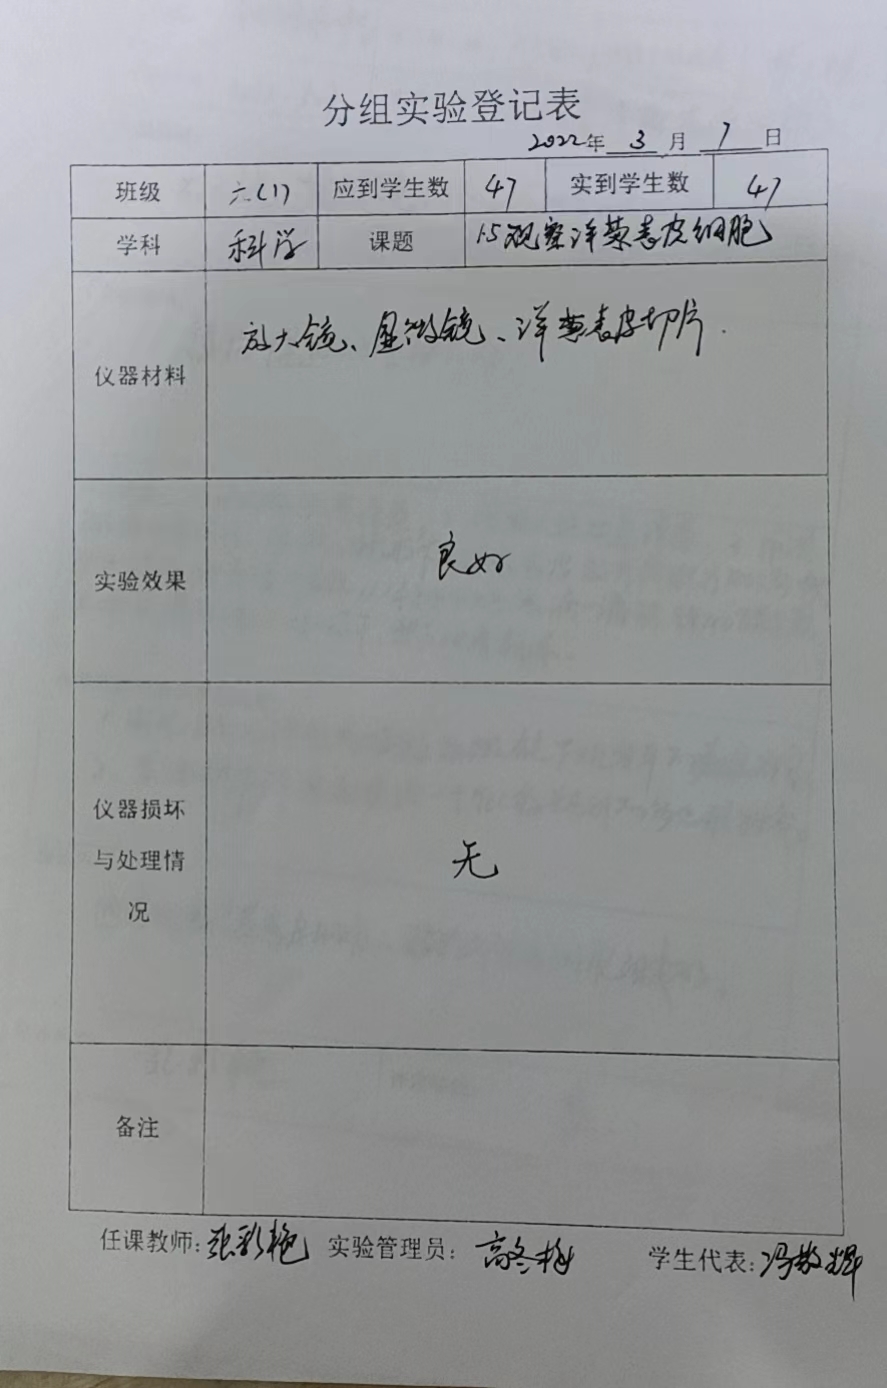 分组实验登记表
2022年 3 月 7 日
班级 六(1) 应到学生数 47 实到学生数 47
学科 科学 课题 1.5观察洋葱表皮细胞
仪器材料 放大镜、显微镜、洋葱表皮切片.
实验效果 良好
仪器损坏
与处理情 无
况
备注
任课教师:张彩艳 实验管理员: 高冬梅 学生代表:冯